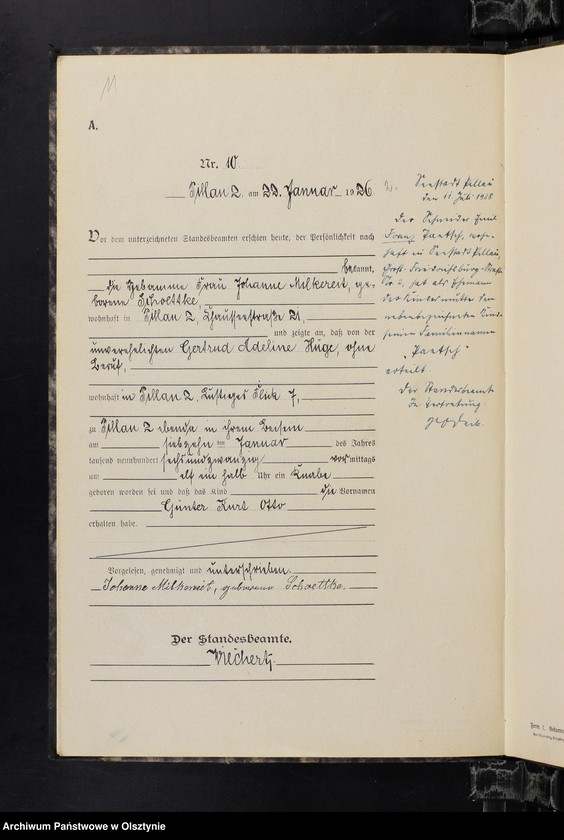 11
A.
Nr. 10
Pillau 2, am 22. Januar 1926.
Vor dem unterzeichneten Standesbeamten erschien heute, der Persönlichkeit nach
bekannt,
die Hebamme Frau Johanne Milkereit, ge-
borene Schoettke,
wohnhaft in Pillau 2, Chausseestraße 21,
und zeigte an, daß von der
unverehelichten Gertrud Adeline Huge, ohne
Beruf,
wohnhaft in Pillau 2, Lustiges Flick 7,
zu Pillau 2 ebenda in ihrem Beisein
am siebzehnten Januar des Jahres
tausend neunhundert sechsundzwanzig vormittags
um elf ein halb Uhr ein Knabe
geboren worden sei und daß das Kind die Vornamen
Günter Kurt Otto
erhalten habe.
Vorgelesen, genehmigt und unterschrieben.
Johanne Milkereit, geborene Schoettke.
Der Standesbeamte.
Wiechert
2. Seestadt Pillau
den 11. Juli
Der Schneider Emil
Franz Paetsch, wohn-
haft in Seestadt Pillau,
hat als Ehemann
der Kindesmutter dem
nebenbezeichneten Kinde
seinen Familiennamen
„Paetsch"
erteilt.
Der Standesbeamte
In Vertretung.
Archiwum Państwowe w Olsztynie